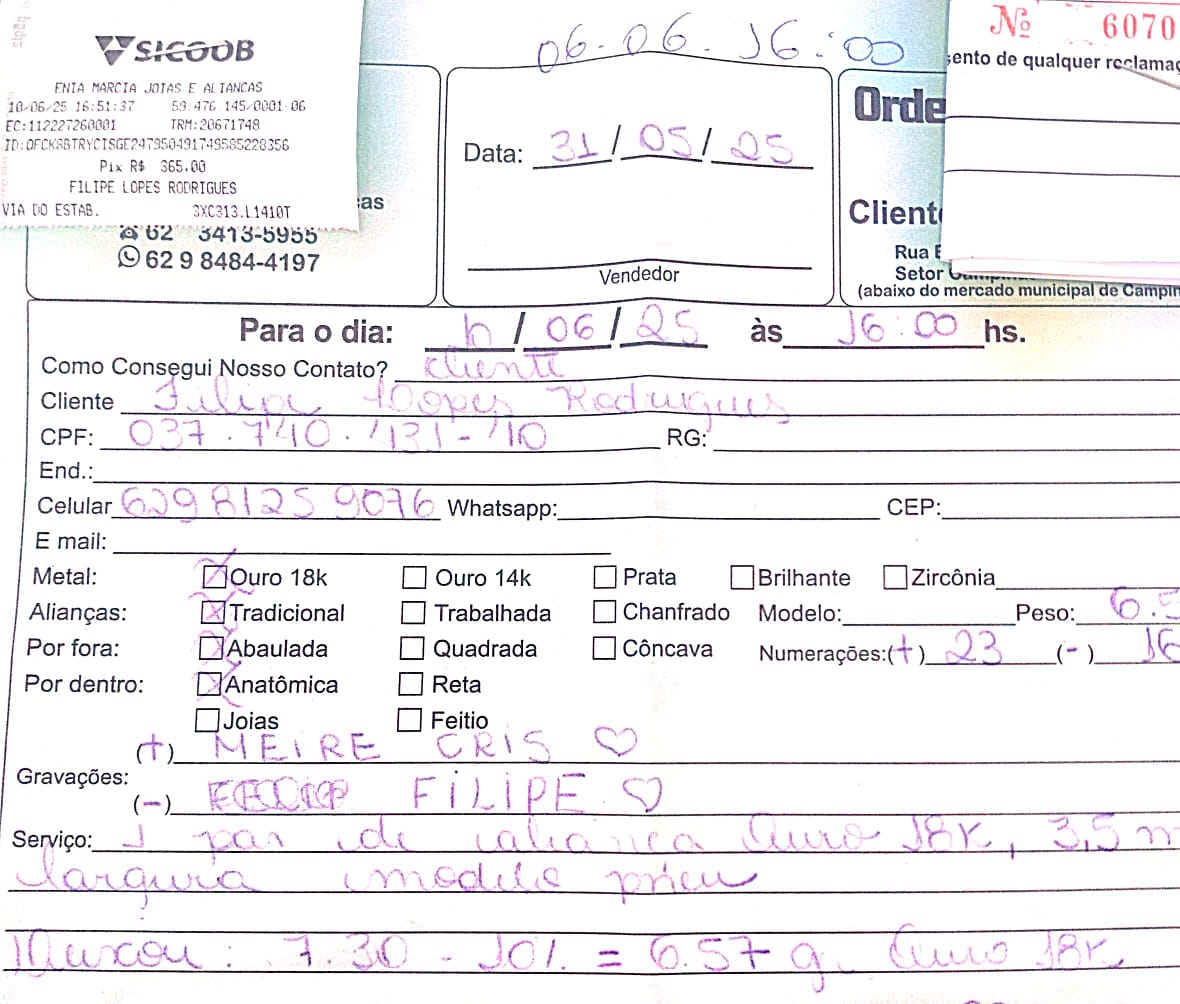 SICOOB
ENIA MARCIA JOIAS E ALIANCAS
10/06/25 16:51:37 59.476.145/0001-06
EC:112227260001 TRM:20671748
ID:OFCK8BTRYCISGE247950491749585228356
Pix R$ 365,00
FILIPE LOPES RODRIGUES
VIA DO ESTAB. 3XC313.L1410T
as
62 3413-5955
62 9 8484-4197
06.06.16:00
Data: 31/05/25
Vendedor
Nº 6070
ento de qualquer reclamaç
Orde
Client
Rua
Setor
(abaixo do mercado municipal de Campin
Para o dia: /06/25 às 16:00 hs.
Como Consegui Nosso Contato? cliente
Cliente Filipe Lopes Rodrigues
CPF: 037.740.131-10 RG:
End.:
Celular 629 8125 9076 Whatsapp: CEP:
E mail:
Metal: Ouro 18k Ouro 14k Prata Brilhante Zircônia
Alianças: Tradicional Trabalhada Chanfrado Modelo: Peso: 6.5
Por fora: Abaulada Quadrada Côncava Numerações:(+) 23 (-) 16
Por dentro: Anatômica Reta
Joias Feitio
(+) MEIRE CRIS ♡
Gravações:
(-) FILIPE ♡
Serviço: 1 par de aliança Ouro 18K, 3,5 m
largura modelo pneu
7.30 - 10% = 6.57 g. Ouro 18K